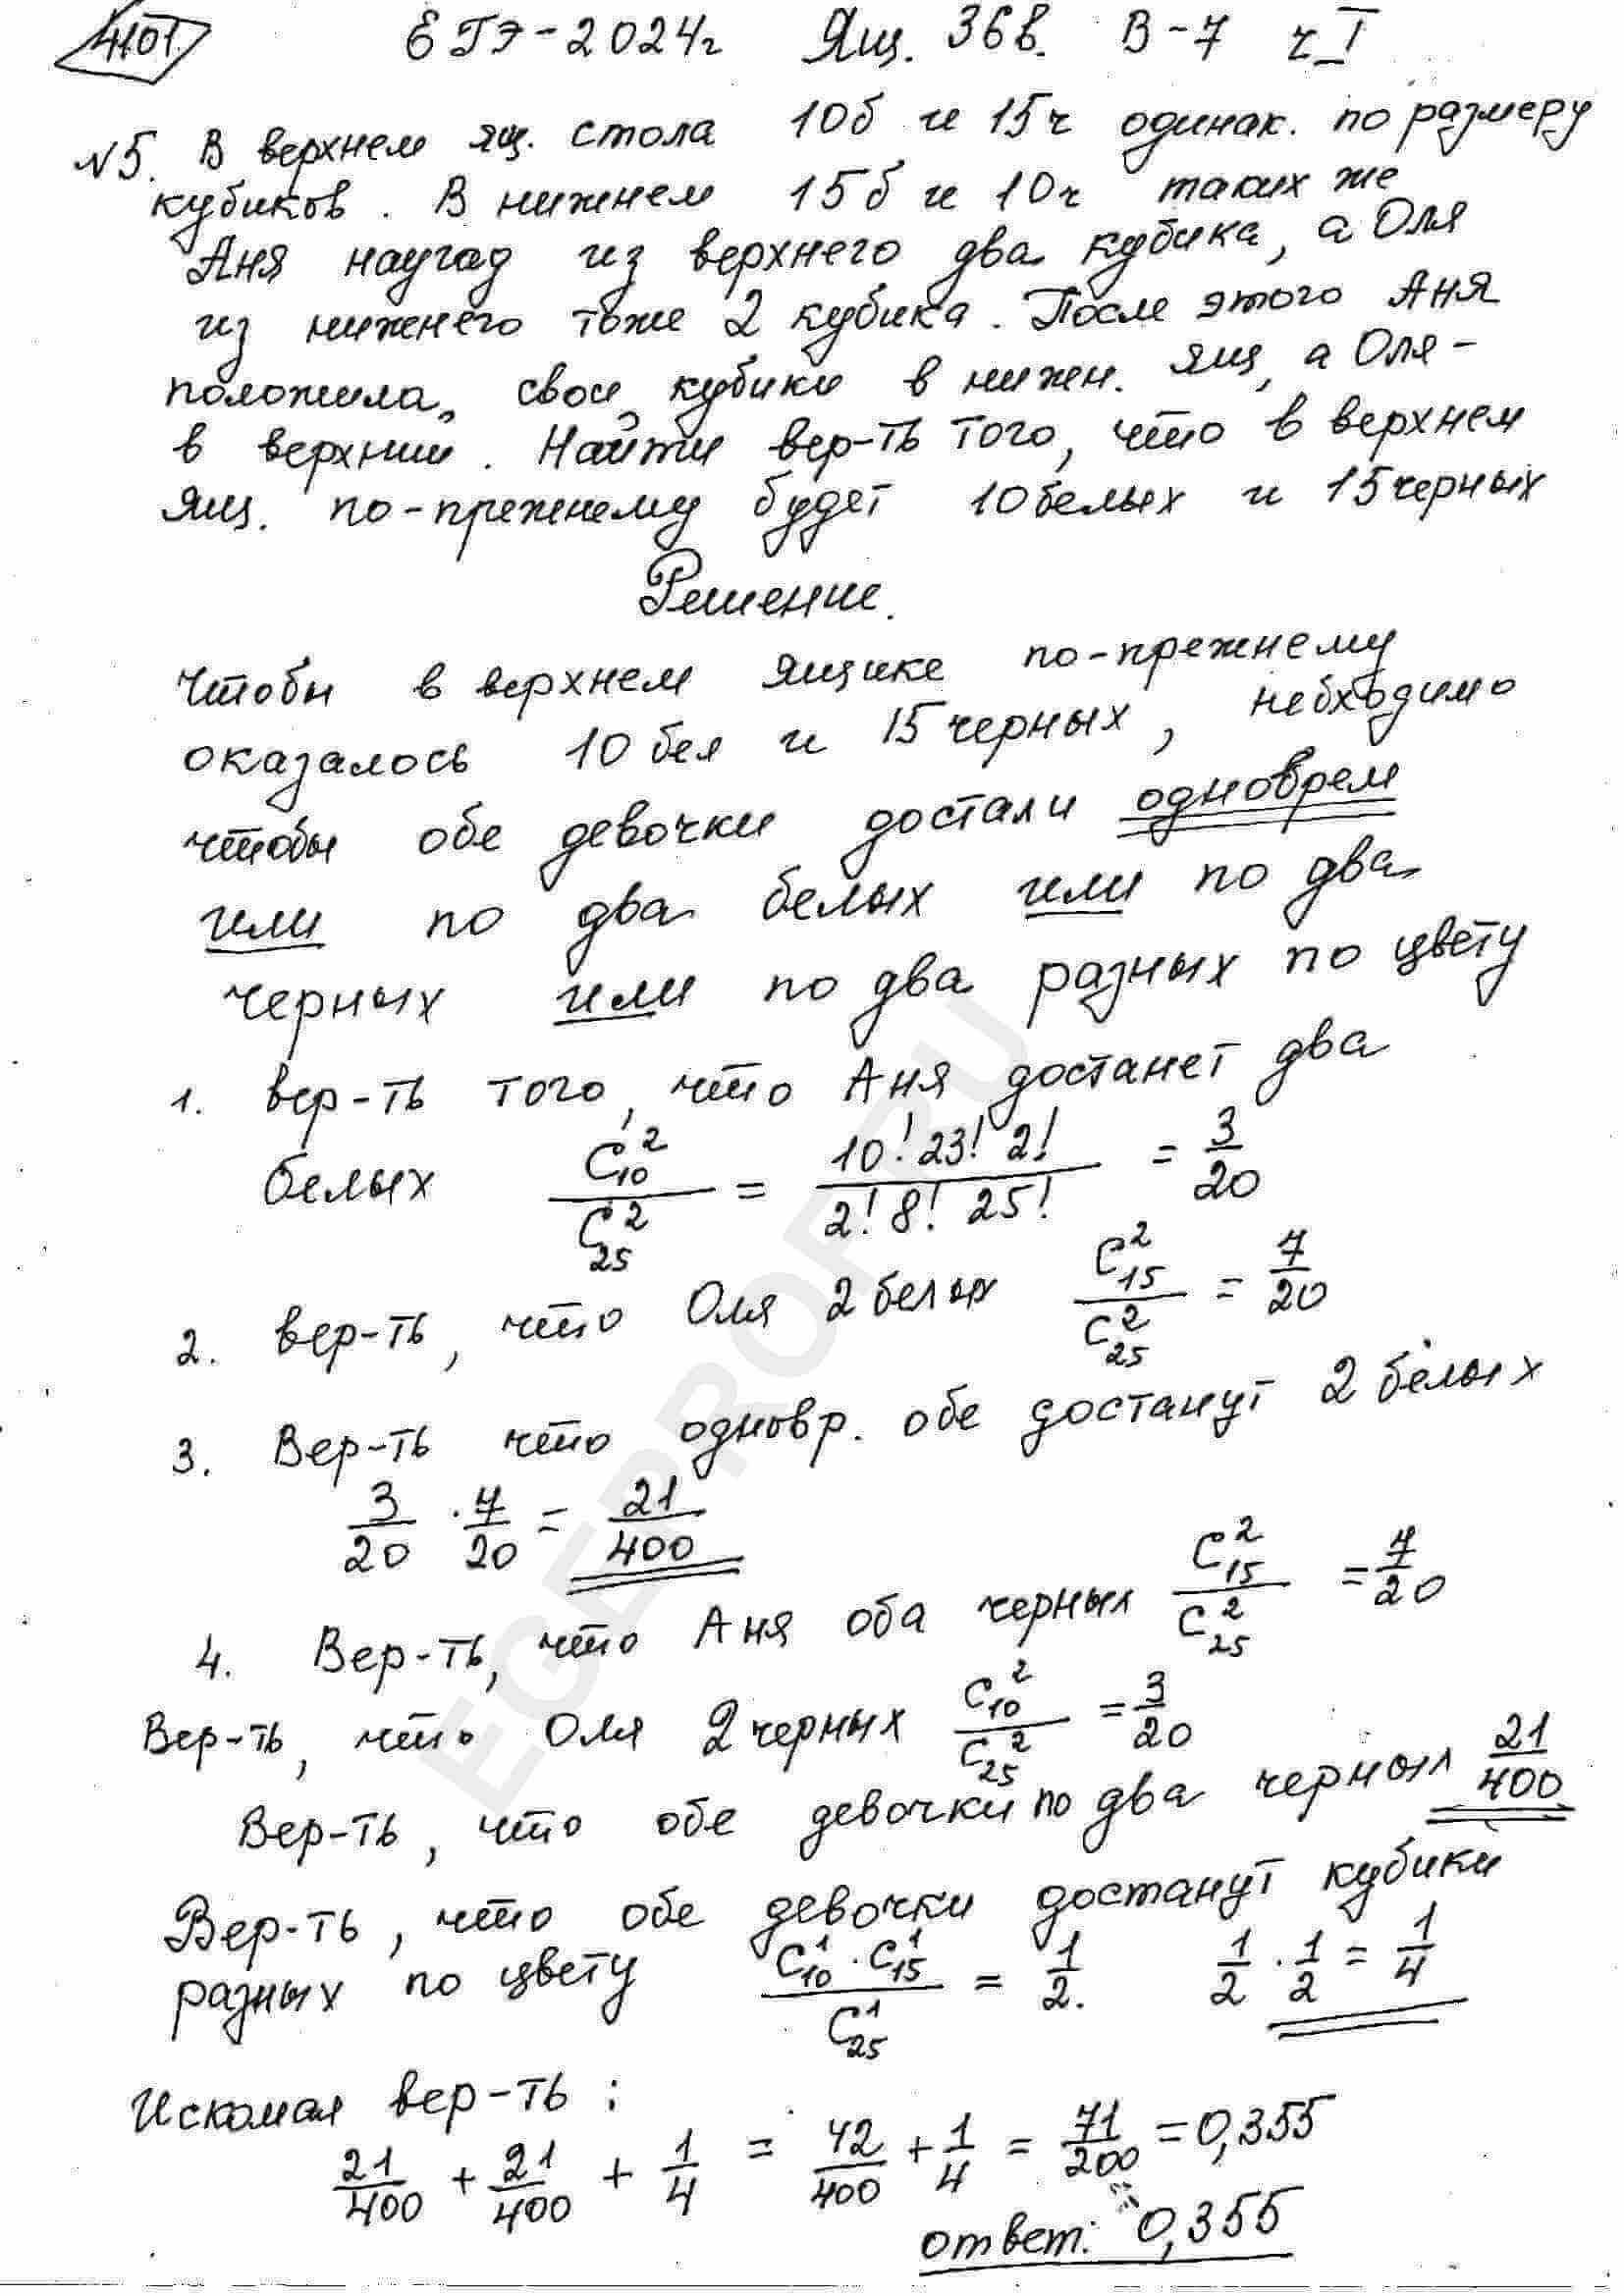 4101 ЕГЭ-2024г Ящ. 36в. В-7 ч I
№5. В верхнем ящ. стола 10б и 15ч одинак. по размеру
кубиков. В нижнем 15б и 10ч таких же
Аня наугад из верхнего два кубика, а Оля
из нижнего тоже 2 кубика. После этого Аня
положила свои кубики в нижн. ящ, а Оля -
в верхний. Найти вер-ть того, что в верхнем
ящ. по-прежнему будет 10 белых и 15 черных
Решение.
Чтобы в верхнем ящике по-прежнему
оказалось 10 бел и 15 черных, небходимо
чтобы обе девочки достали одноврем
или по два белых или по два
черных или по два разных по цвету
1. вер-ть того, что Аня достанет два
белых C_10^2 / C_25^2 = 10! 23! 2! / 2! 8! 25! = 3/20
2. вер-ть, что Оля 2 белых C_15^2 / C_25^2 = 7/20
3. Вер-ть что одновр. обе достанут 2 белых
3/20 · 7/20 = 21/400
4. Вер-ть, что Аня оба черных C_15^2 / C_25^2 = 7/20
Вер-ть, что Оля 2 черных C_10^2 / C_25^2 = 3/20
Вер-ть, что обе девочки по два черных 21/400
Вер-ть, что обе девочки достанут кубики
разных по цвету C_10^1 · C_15^1 / C_25^1 = 1/2. 1/2 · 1/2 = 1/4
Искомая вер-ть:
21/400 + 21/400 + 1/4 = 42/400 + 1/4 = 71/200 = 0,355
ответ: 0,355
EGEPROF.RU